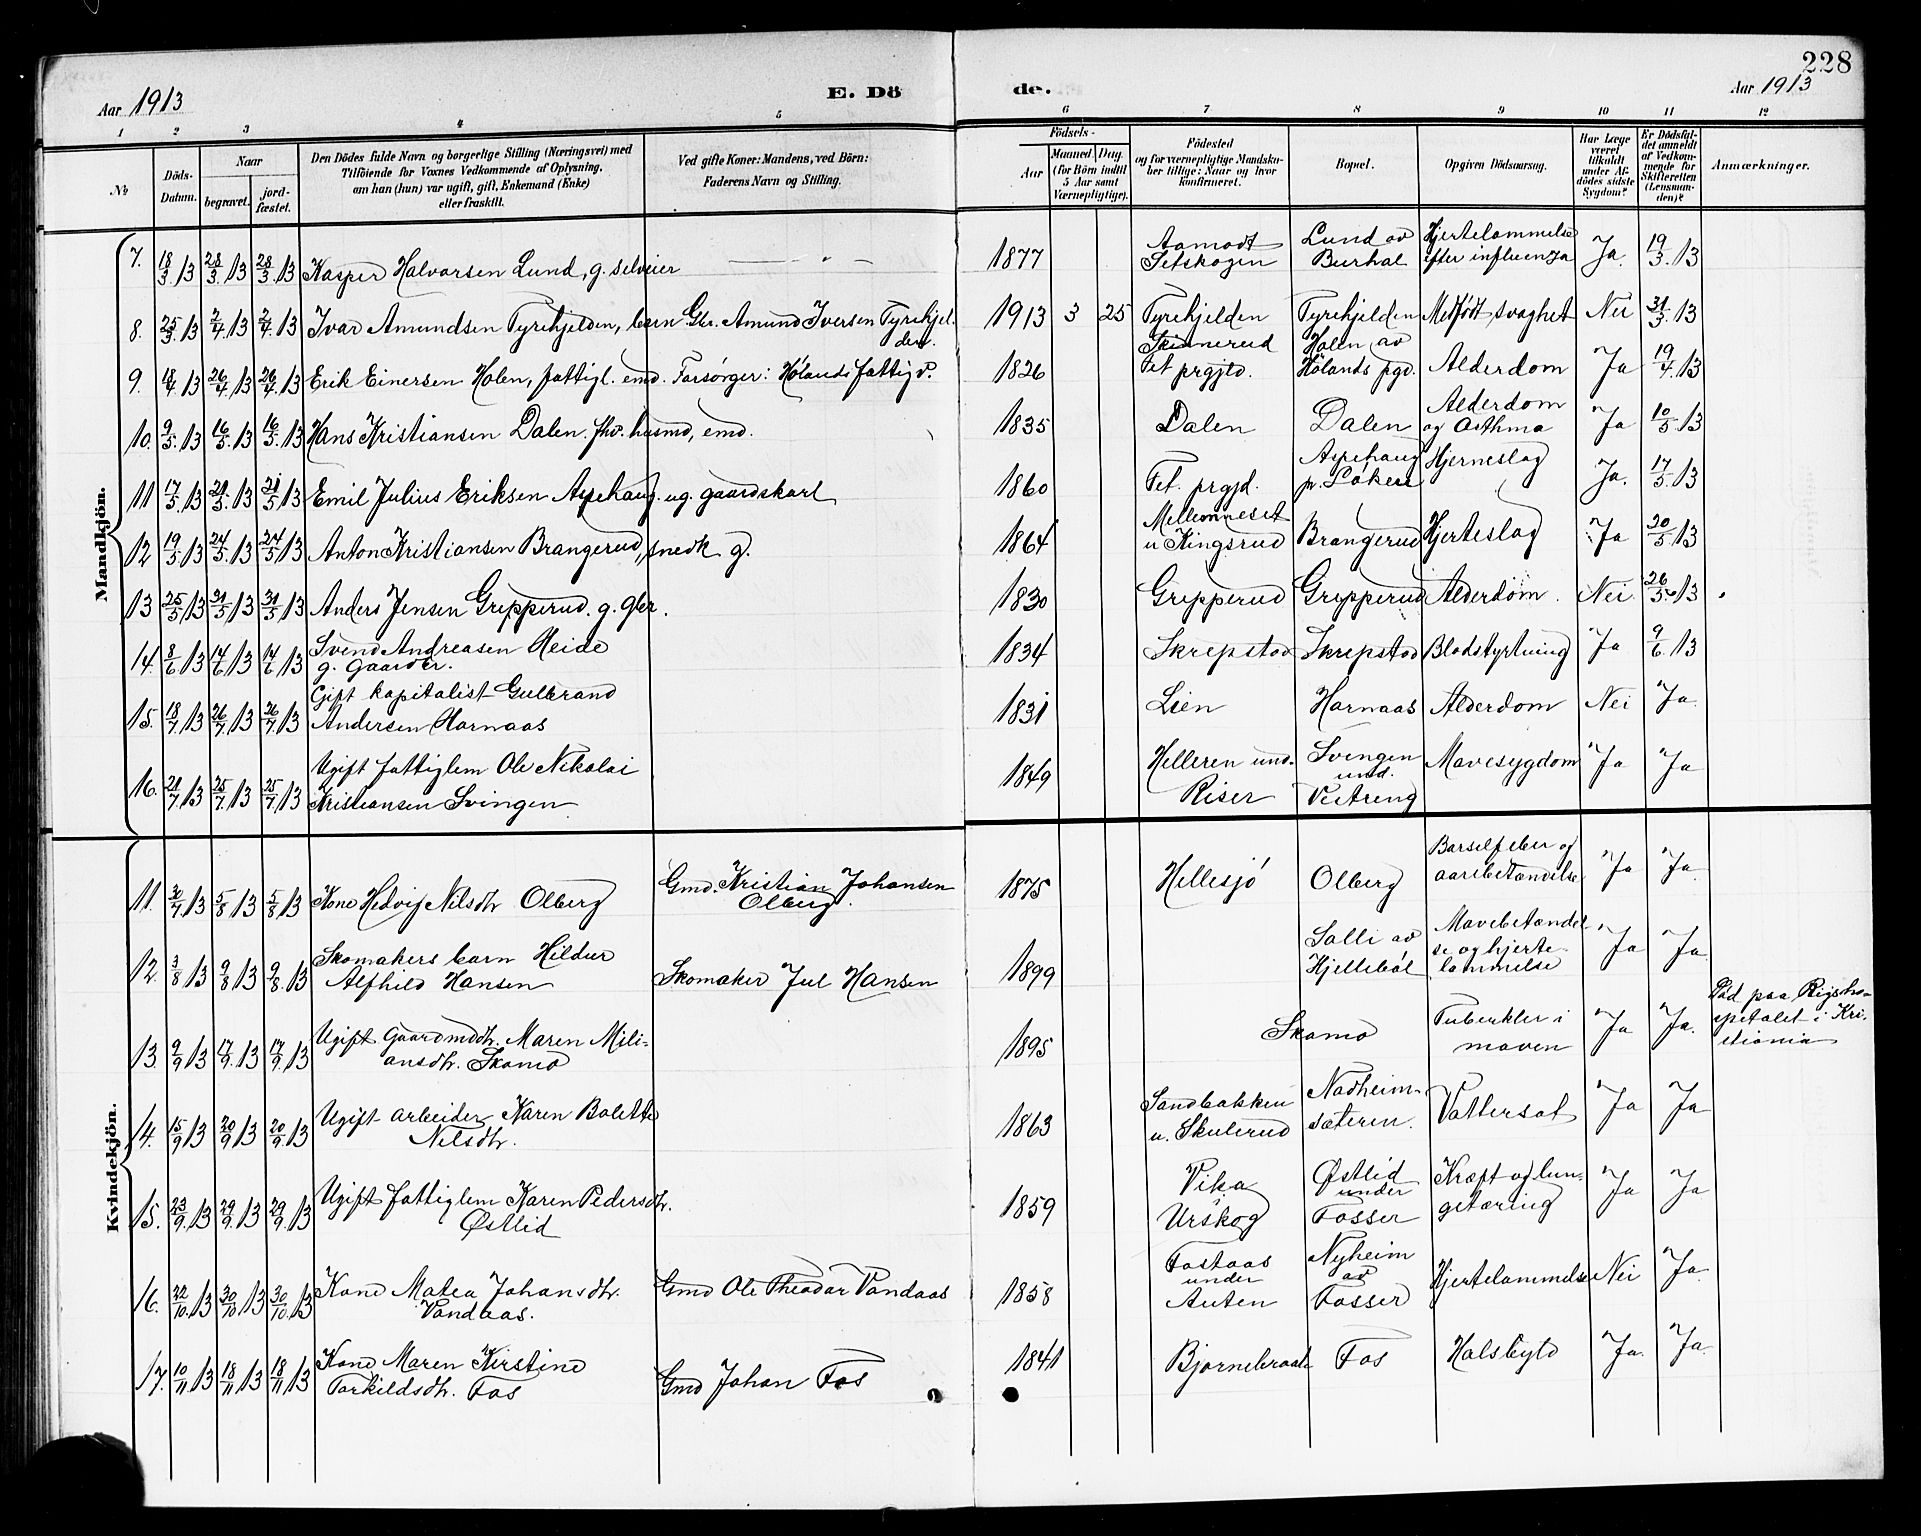 228
Aar 1913 E. Dö de. Aar 1913
1 2 3 4 5 6 7 8 9 10 11 12
No
Döds-Datum.
Naar
begravet.
jord-fæstet.
Den Dödes fulde Navn og borgerlige Stilling (Næringsvei) med
Tilföiende for Voxnes Vedkommende af Oplysning,
om han (hun) var ugift, gift, Enkemand (Enke)
eller fraskilt.
Ved gifte Koner: Mandens, ved Börn:
Faderens Navn og Stilling.
Födsels-
Aar
Maaned. Dag.
(for Börn indtil
5 Aar samt
Værnepligtige).
Födested
og for værnepligtige Mandsku-
ber tillige: Naar og hvor
konfirmeret.
Bopæl.
Opgiven Dödsaarsag.
Har Læge
været
tilkaldt
under Af-
dödes sidste
Sygdom?
Er Dödsfal-
det anmeldt
af Vedkom-
mende for
Skifteretten
(Lensman-
den)?
Anmærkninger.
Mandkjön.
7. 18/3 13 28/3 13 28/3 13 Kasper Halvorsen Lund, g. selveier — " — 1877 Aamodt Setskogen Lund av Burhol Hjertelammelse efter influenza Ja. 19/3 13
8. 25/3 13 2/4 13 2/4 13 Ivar Amundsen Tyrihjelden, barn Gbr. Amund Iversen Tyrihjel-den. 1913 3 25 Tyrihjelden Tyrihjelden Medfödt svaghet Nei 31/3 13
9. 18/4 13 26/4 13 26/4 13 Erik Einersen Holen, fattigl. emd. Forsørger: Hölands fattigv. 1826 Skinnerud Fet prgjld. Holen av Hölands pgd. Alderdom Ja 19/4 13
10. 9/5 13 16/5 13 16/5 13 Hans Kristiansen Dalen. fhv. husmd, emd. 1835 Dalen Dalen Alderdom og Asthma Ja 10/5 13
11 17/5 13 21/5 13 21/5 13 Emil Julius Eriksen Aspehaug. ug. gaardskarl 1860 Fet. prgjd. Aspehaug p. Löken Hjerneslag Ja. 17/5 13
12 19/5 13 24/5 13 24/5 13 Anton Kristiansen Brangerud, snedk g. 1864 Mellemneset u Kingsrud Brangerud Hjerteslag Ja 20/5 13
13 25/5 13 31/5 13 31/5 13 Anders Jensen Gripperud. g. gbr. 1830 Gripperud Gripperud Alderdom. Nei 26/5 13
14. 8/6 13 14/6 13 14/6 13 Svend Andreasen Heide g. Gaardbr. 1834 Skrepstad Skrepstad Blodstyrtning Ja 9/6 13
15. 18/7 13 26/7 13 26/7 13 Gift kapitalist Gulbrand Andersen Harnaas 1831 Lien Harnaas Alderdom Nei Ja
16. 21/7 13 25/7 13 25/7 13 Ugift fattiglem Ole Nikolai Kristiansen Svingen 1849 Helleren und. Riser Svingen und. Veitreng Mavesygdom Ja Ja
Kvindekjön.
11. 30/7 13 5/8 13 5/8 13 Kone Hedvig Nilsdtr Olberg Gmd. Kristian Johansen Olberg. 1875 Hellesjö Olberg Barselfeber og aarebetændelse Ja Ja
12. 3/8 13 9/8 13 9/8 13 Skomakers barn Hildur Alfhild Hansen Skomaker Jul Hansen 1899 Solli av Hjelleböl Mavebetændel-se og hjerte-lammelse Ja Ja
13. 9/9 13 17/9 13 17/9 13 Ugift Gaardmdtr. Maren Mili-ansdtr. Skamo 1895 Skamo Tuberkler i maven Ja Ja Död paa Rigsho-spitalet i Kri-stiania
14. 15/9 13 20/9 13 20/9 13 Ugift arbeider Karen Bolette Nilsdtr. 1863 Sandbakken u. Skulerud Nadheim-sæteren. Vattersot Ja Ja
15. 23/9 13 29/9 13 29/9 13 Ugift fattiglem Karen Pedersdtr. Østlid 1859 Vika Urskog Østlid under Fosser Kræft og lun-getæring Ja Ja
16. 22/10 13 30/10 13 30/10 13 Kone Matea Johansdtr. Vandaas. Gmd Ole Theodor Vandaas 1858 Fostaas under Auten Nyheim av Fosser Hjertelammelse Nei Ja
17. 10/11 13 18/11 13 18/11 13 Kone Maren Kirstine Torkildsdtr. Fos Gmd Johan Fos 1841 Bjørnebraate Fos Halsbyld Ja. Ja